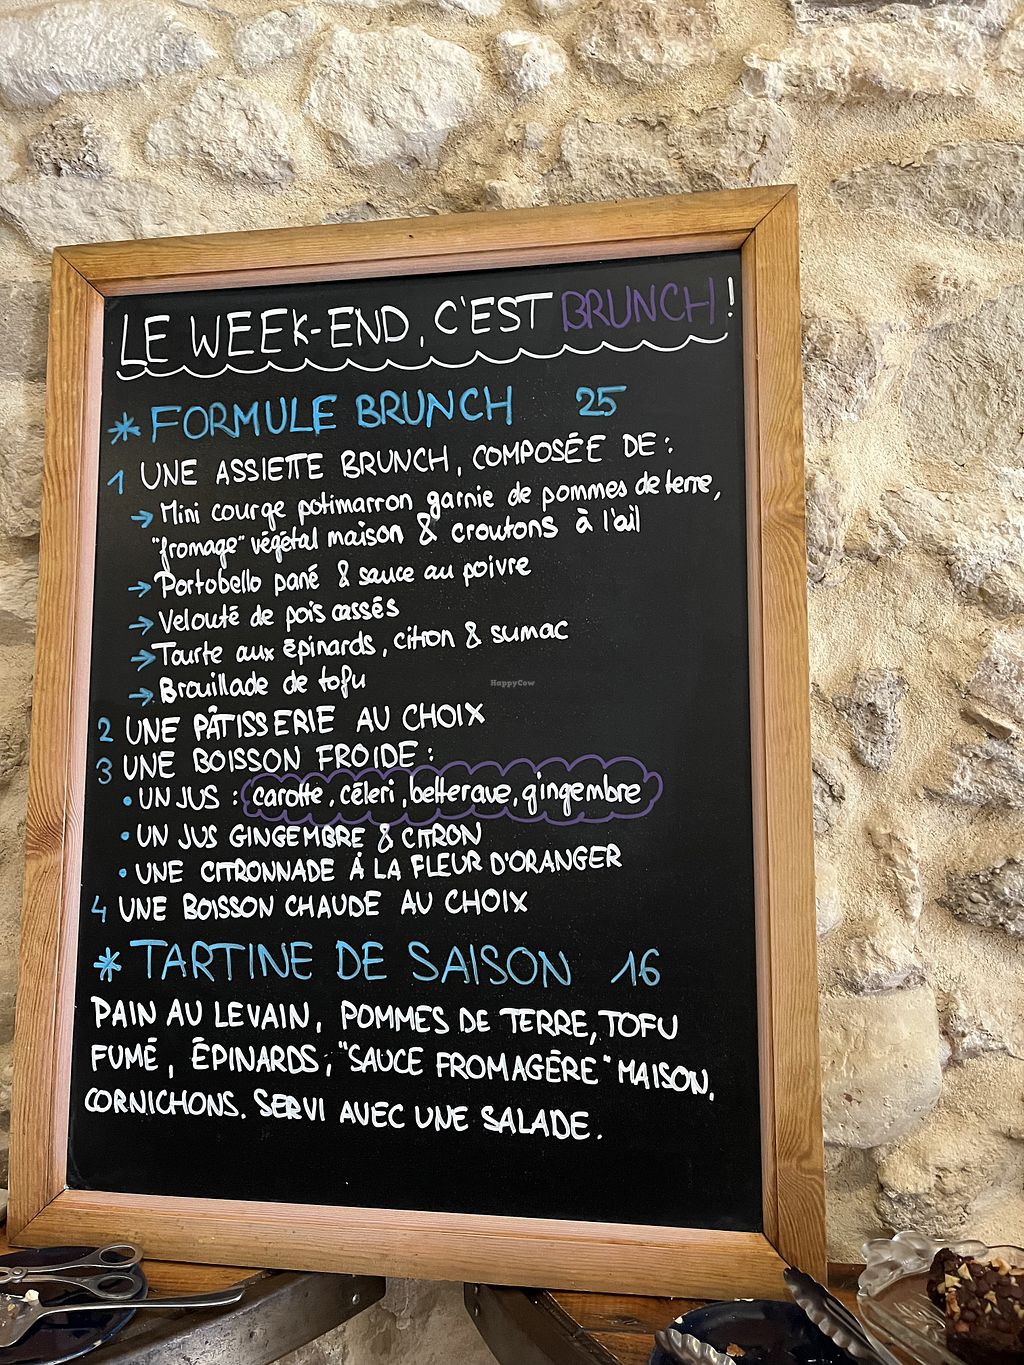 LE WEEK-END, C'EST BRUNCH !
* FORMULE BRUNCH 25
1 UNE ASSIETTE BRUNCH, COMPOSÉE DE :
→ Mini courge potimarron garnie de pommes de terre,
"fromage" végétal maison & croutons à l'ail
→ Portobello pané & sauce au poivre
→ Velouté de pois cassés
→ Tourte aux épinards, citron & sumac
→ Brouillade de tofu
HappyCow
2 UNE PÂTISSERIE AU CHOIX
3 UNE BOISSON FROIDE :
• UN JUS : carotte, céleri, betterave, gingembre
• UN JUS GINGEMBRE & CITRON
• UNE CITRONNADE À LA FLEUR D'ORANGER
4 UNE BOISSON CHAUDE AU CHOIX
* TARTINE DE SAISON 16
PAIN AU LEVAIN, POMMES DE TERRE, TOFU
FUMÉ, ÉPINARDS, "SAUCE FROMAGÈRE" MAISON,
CORNICHONS. SERVI AVEC UNE SALADE.